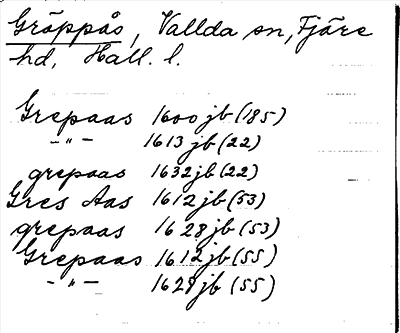 Gräppås, Vallda sn, Fjäre
hd, Hall. l.
Grepaas 1600 jb (185)
-"- 1613 jb (22)
grepaas 1632 jb (22)
Gres Aas 1612 jb (53)
grepaas 1628 jb (53)
Grepaas 1612 jb (55)
-"- 1628 jb (55)